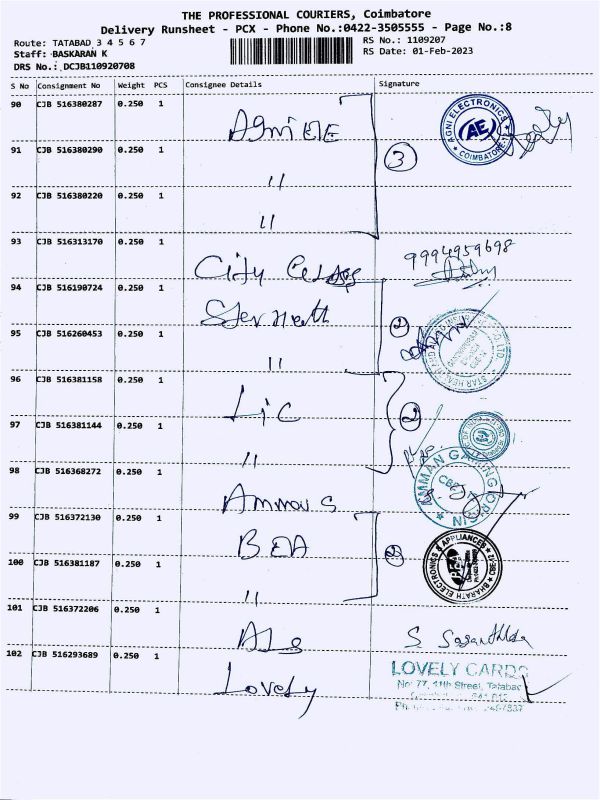 THE PROFESSIONAL COURIERS, Coimbatore
Delivery Runsheet - PCX - Phone No.:0422-3505555 - Page No.:8
Route: TATABAD 3 4 5 6 7
RS No.: 1109207
Staff: BASKARAN K
RS Date: 01-Feb-2023
DRS No.: DCJB110920708
S No Consignment No Weight PCS Consignee Details Signature
90 CJB 516380287 0.250 1 Agni
AGNI ELECTRONICS AE COIMBATORE-12
91 CJB 516380290 0.250 1 "
3
92 CJB 516380220 0.250 1 "
93 CJB 516313170 0.250 1 City
9994959698
94 CJB 516190724 0.250 1
2
95 CJB 516260453 0.250 1 "
96 CJB 516381158 0.250 1 Lic
2
97 CJB 516381144 0.250 1 "
98 CJB 516368272 0.250 1
99 CJB 516372130 0.250 1
BHARATH ELECTRONICS & APPLIANCES CBE-12
100 CJB 516381187 0.250 1 "
101 CJB 516372206 0.250 1
102 CJB 516293689 0.250 1 Lovely
LOVELY CARDS
No: 77, 11th Street, Tatabad